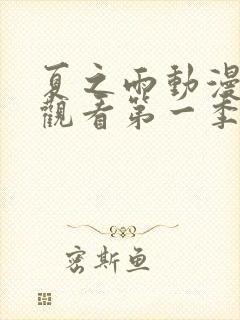 夏之雨動漫
觀看第一季
密斯鱼